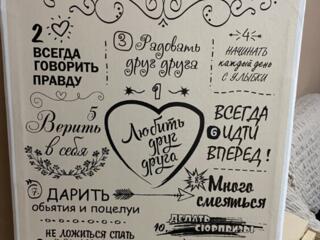 2
ВСЕГДА
ГОВОРИТЬ
ПРАВДУ
3 Радовать
друг друга
4
НАЧИНАТЬ
каждый день
с УЛЫБКИ
1
Любить
друг
друга
5
Верить
в себя
ВСЕГДА
6 ИДТИ
ВПЕРЕД!
7. ДАРИТЬ
объятия и поцелуи
Много
смеяться
НЕ ЛОЖИТЬСЯ СПАТЬ
10. ДЕЛАТЬ
СЮРПРИЗЫ